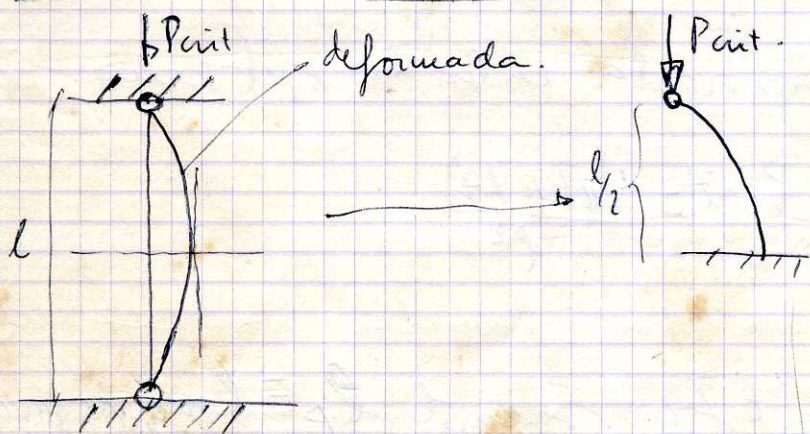 Pcrit
deformada.
Pcrit.
l
l/2